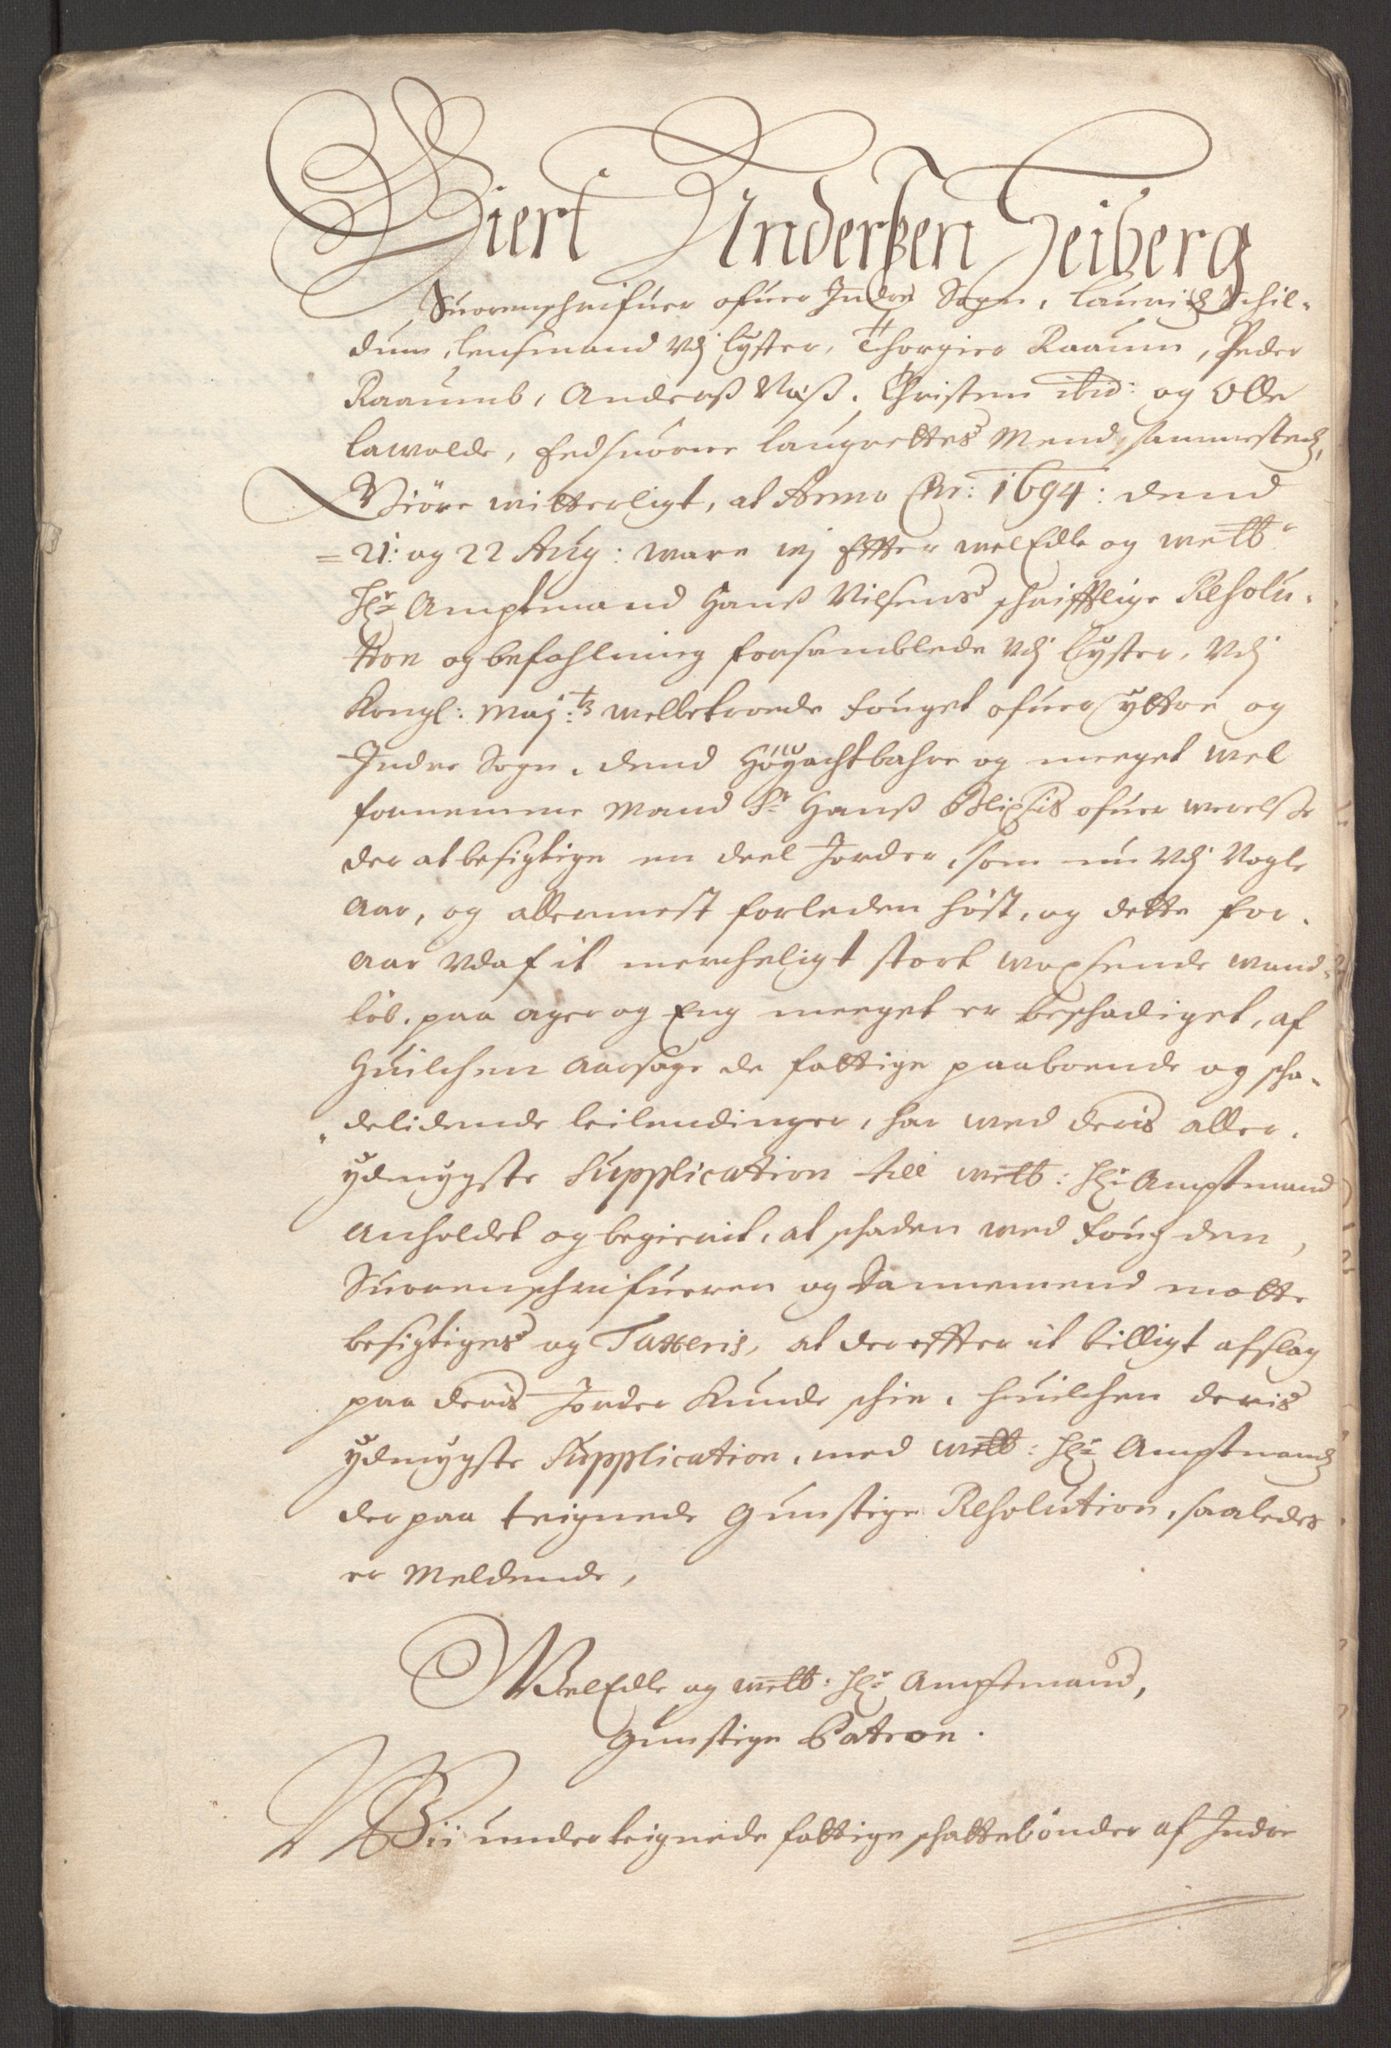 Giert Anderßen Heiberg
Suorenschrifuer ofuer Indre Sogn, Lauridz Schil-
dum, Lensmand Vdj Lyster, Thorgier Raaum, Peder
Raaumb, Anderß Næß, Christen ibid: og Olle
Lawolde, Eedsuorne Laugrettes Mend sammestedz,
Giöre witterligt, at Anno Chr: 1694: dend
21: og 22 Aug: ware wj Effter welEdle og welb:
Hr: Amptmand Hanß Nilsens schrifftlige Resolu-
tion og befahlning forsamblede Vdj Lyster, Vdj
Kongl: Maj:ts welbetroede Fouget ofuer yttre og
Indre Sogn, dend Höÿachtbahre og meeget wel
fornemme Mand Sr: Hanß Blixis ofuerwerelße
der at besigtige en deel Jorder, som nu Vdj Nogle
Aar, og allermest forleden höst, og dette for-
aar Vdaf it mercheligt stort woxsende wand-
löb, paa ager og Eng meeget er beschadiget, af
Huilchen Aarsage de fattige paaboende og scha-
delidende leilendinger, har med deris aller-
ydmygste Supplication till welb: Hr: Amptmand
Anholdet og begierit, at schaden med Fougden,
Suorenschrifueren og Dannemend motte
besigtiges og Taxeris, at der effter it billigt afslag
paa deris Jorder Kunde schie, huilchen deris
ydmygste Supplication, med welb: Hr: Amptmandz
der paa teignede Gunstige Resolution, saaledes
er Meldende,
WelEdle og welb: Hr: Amptmand,
Gunstige Patron.
Wii underteignede fattige schattebönder af Indre